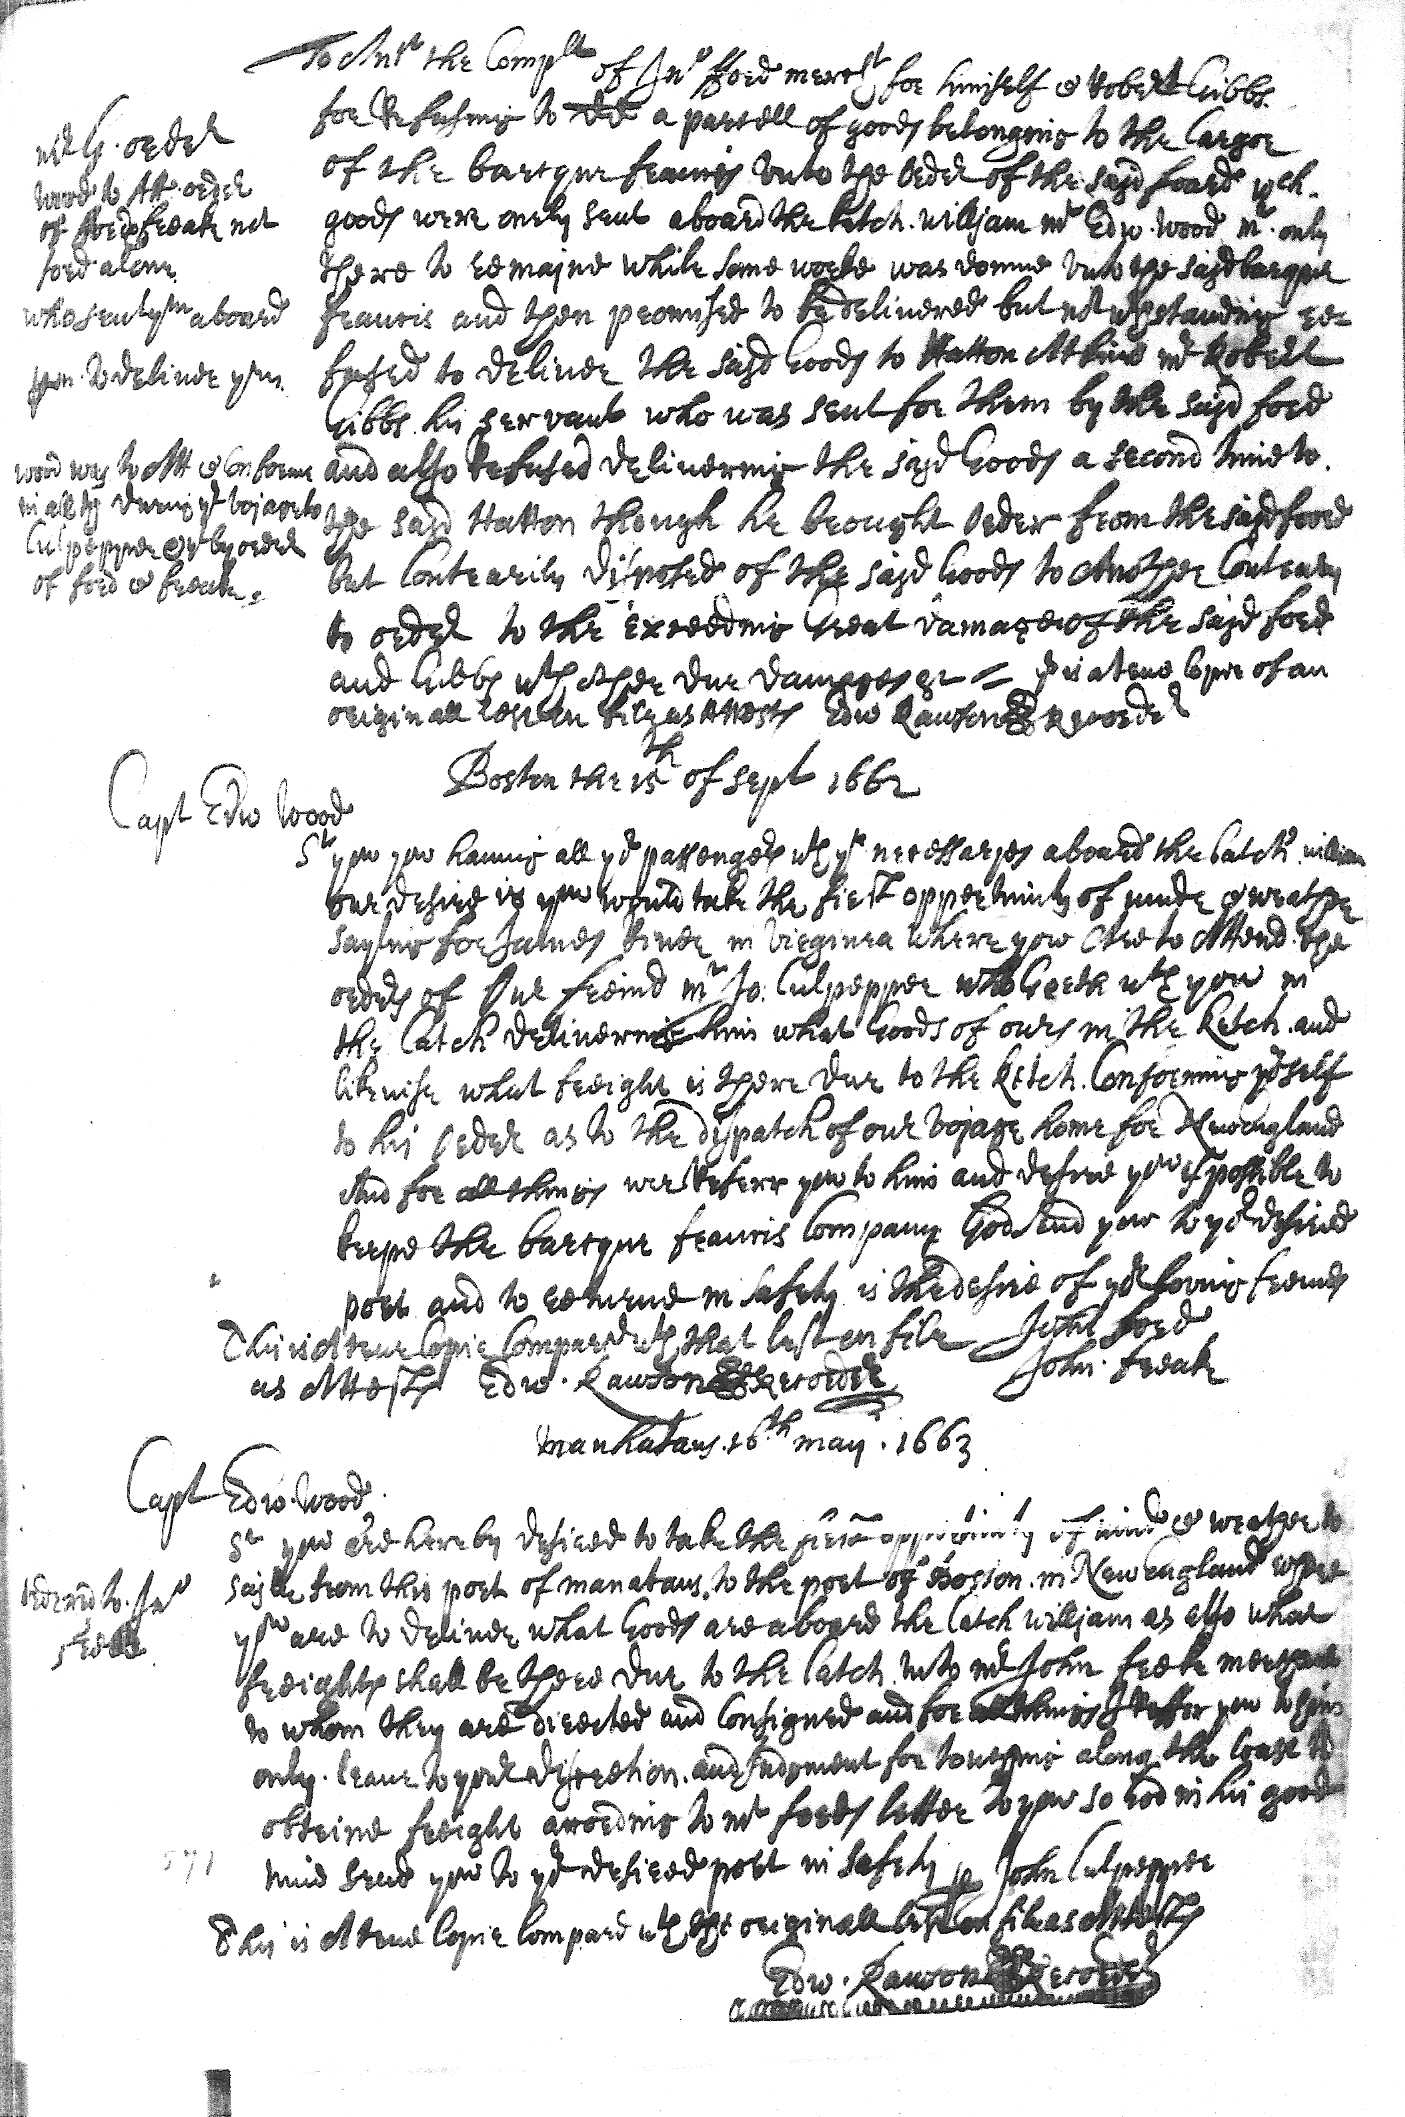 To Answr the Complt of Jno fford mercht for himself & Robert Gibbs.
for Refusing to dd a parcell of goods belonging to the Cargoe
of the barcque francis vnto the Order of the sajd foard wch.
goods were onely sent aboard the ketch. william mr Edw. Wood mr. only
there to remajne while some worke was donne vnto the sajd barque
francis and then promised to be delivered but notwthstanding re-
fused to deliver the sajd Goods to Hatton Atkins mr Robert
Gibbs his servant who was sent for them by the sajd ford
and also Refused delivering the sajd Goods a second time to.
the sajd Hatton though he brought Order from the sajd foord
but Contrarily disposed of the sajd Goods to Another Contrary
to order to the exceeding Great damage of the sajd ford
and Gibbs wth other due damages &c = ys is a true Copie of an
originall left on file as Attests Edw Rawson Recorder
mr G. order
wood to Att. order
of fford & freake not
ford alone.
who sent ym aboard
yn. to deliver ym.
wood was to Att & Conforme
in all ys during ye vojage to
Culpepper by order
of ford & freake.
Boston the 15th of sept 1662
Capt Edw Wood
Sr yow now having all yor passengers wth yr necessarjes aboard the Catch. william
our desire is yow would take the first oppertunity of winde & weather
sayling for James River in Virginea where yow Are to Attend the
orders of Our freind mr Jo: Culpepper who Goeth wth yow in
the Catch delivering him what Goods of ours in the ketch. and
likewise what freight is there due to the ketch. Conforming yorself
to his order as to the dispatch of our vojage home for New England
And for all things wee Referr yow to him and desire yow if possible to
keepe the barcque francis Company God send yow to yor desired
port and to returne in safety is the desire of yor loving freinds
This is A true Copie Compared wth that left on file John fford
as Attests Edw. Rawson Recorder John. freake
manhatans. 16th may. 1663
Capt Edw. Wood.
Sr yow are hereby desired to take the first opportunity of wind & weather to
sajle from this port of manatans. to the port of Boston. in New England where
yow are to deliver what Goods are aboard the Catch william as also what
freights shall be there due to the Catch. vnto mr John freke merchant
to whom they are directed and Consigned and for all things I Reffer yow to him
only. leave to your discretion. and Judgment for touching along the Coast to
obteine freight according to mr fords letter to yow so God in his good
time send yow to yor desired port in safety p John Culpepper
This is A true Copie Compared wth the originall left on file as Attests
Edw. Rawson Recorder
Ordered to. Jno
freake
571